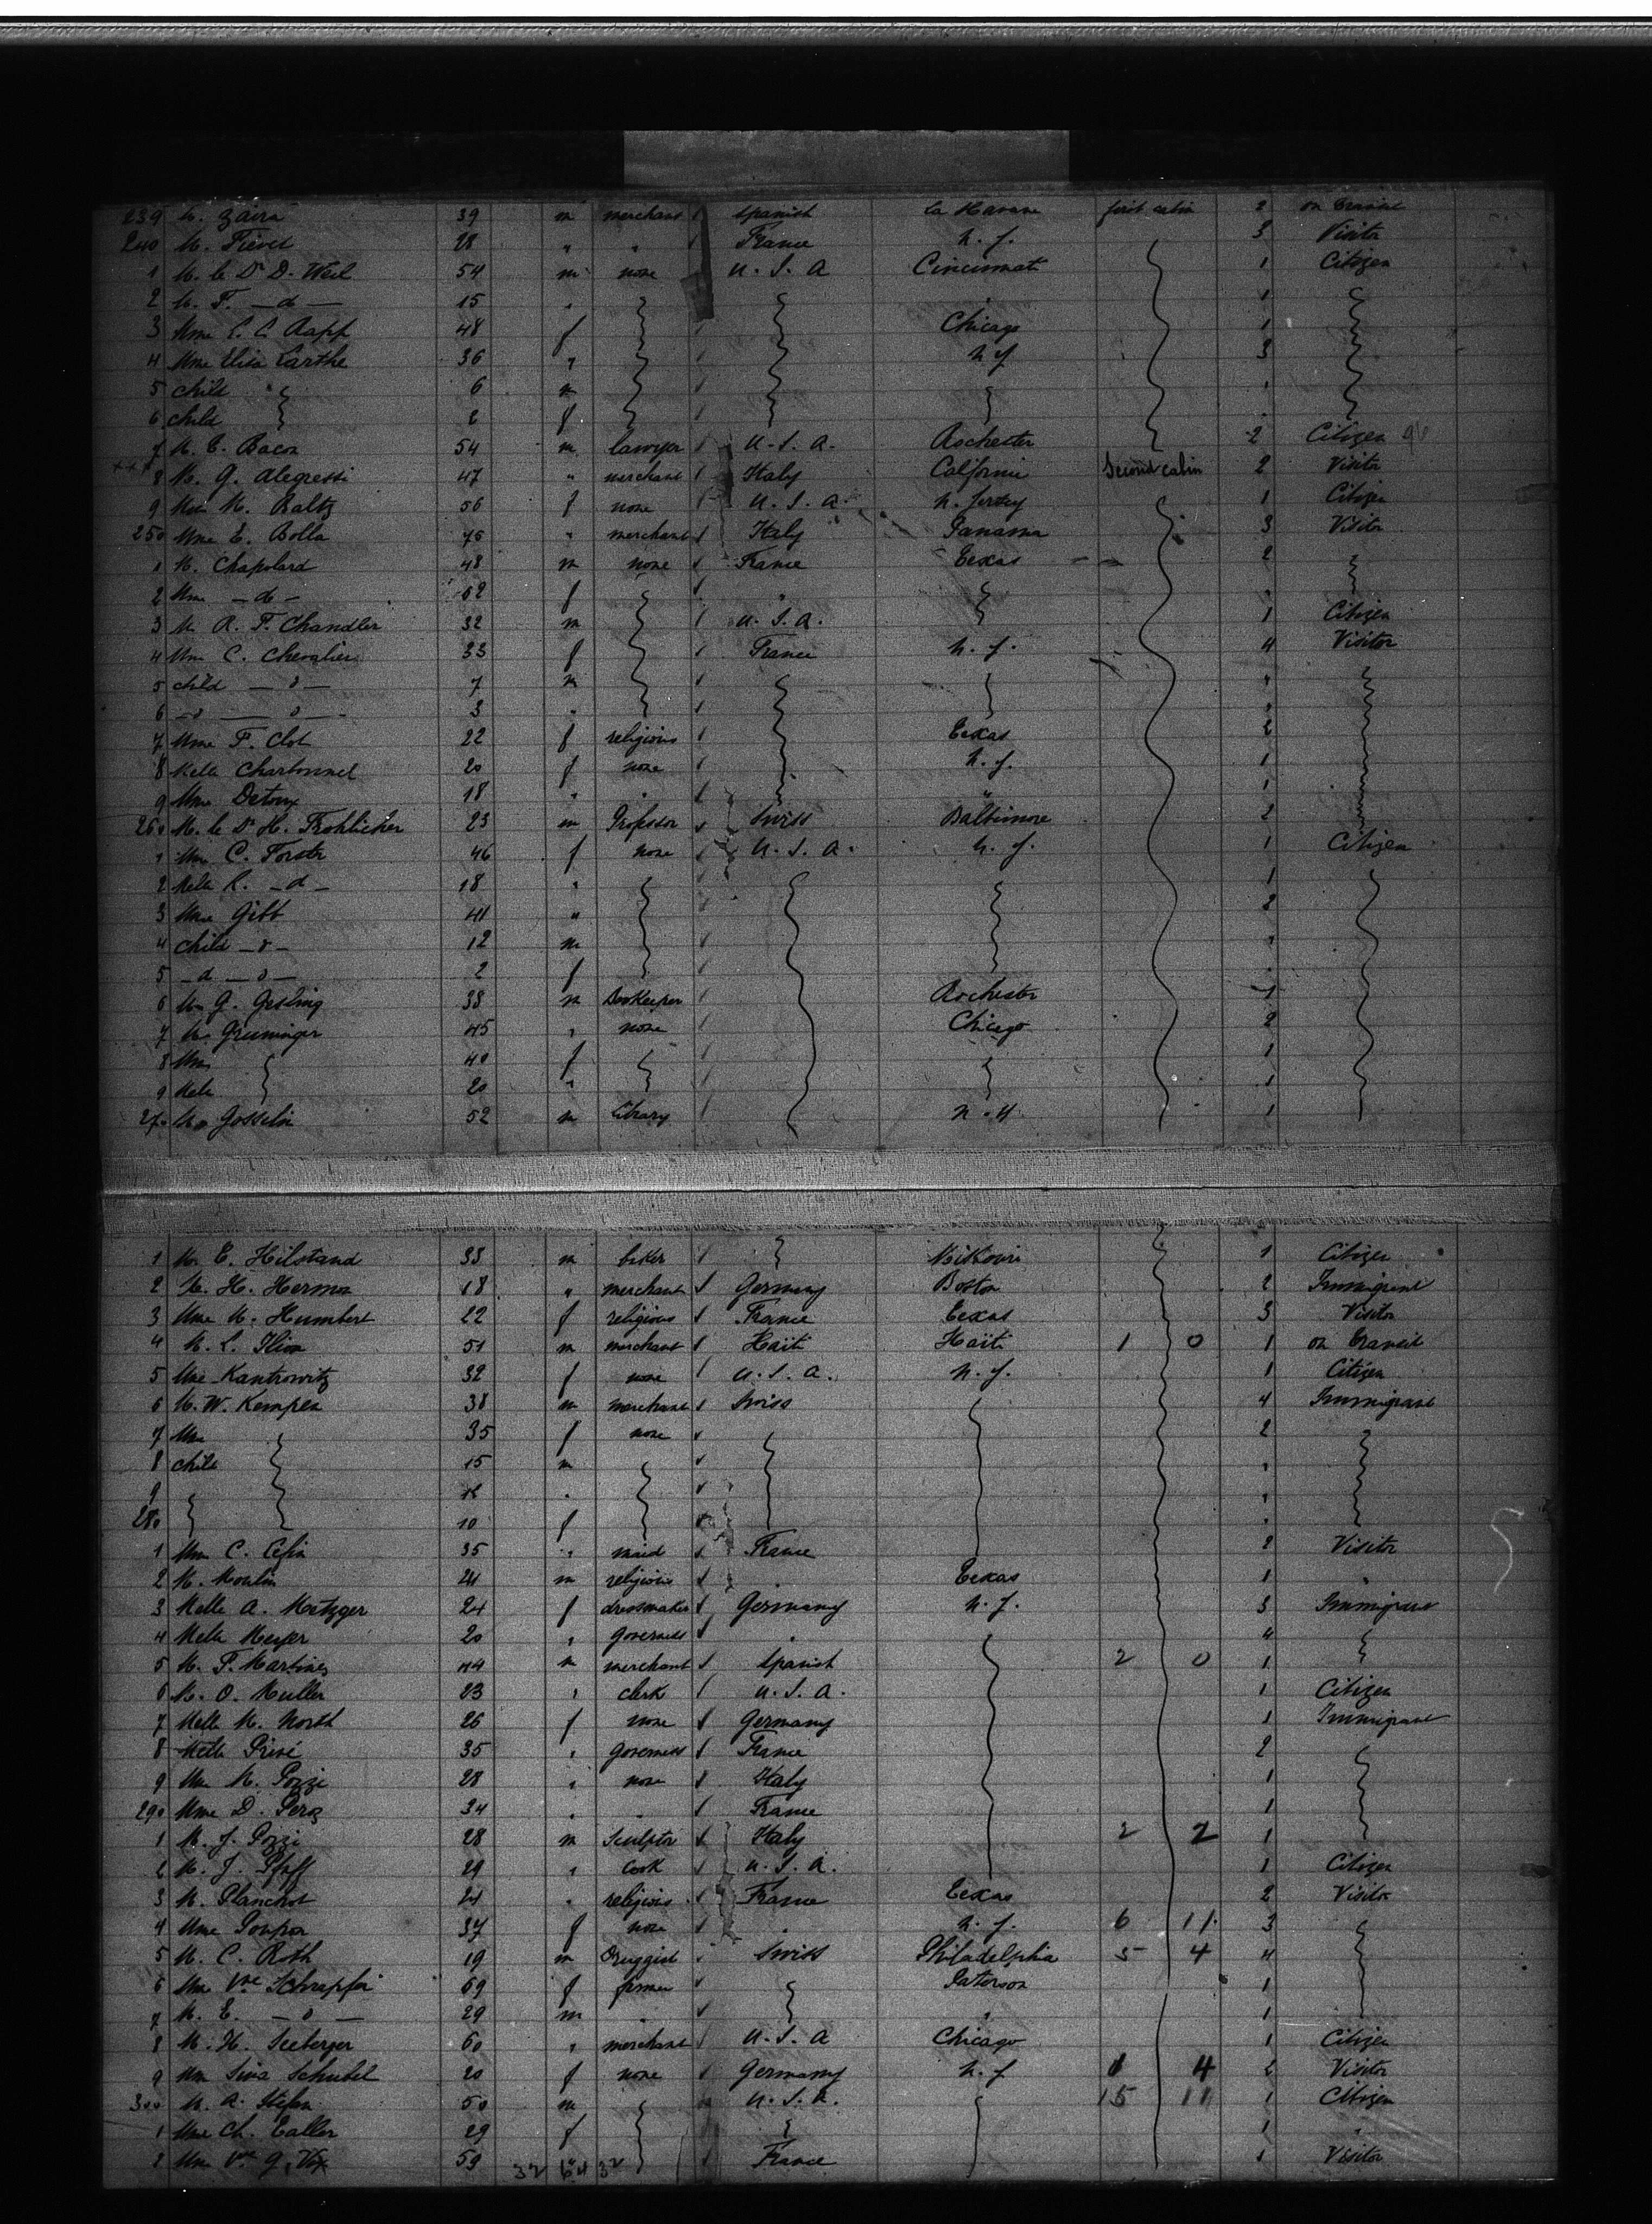 239 M. Zaira 39 m merchant Spanish La Havane first cabin 2 on transit
240 M. Fievet 28 " " France N. Y. 3 Visitor
1 M. le Dr D. Weil 54 m none U. S. A Cincinnati 1 Citizen
2 M. F. — d — 15 " 1
3 Mme C. C. Rapp 48 f Chicago 1
4 Mme Elisa Larthe 36 " N Y 3
5 child " 6 m "
6 child 2 f "
7 M. E. Bacon 54 m lawyer U. S. A. Rochester 2 Citizen
8 M. G. Alegressi 47 " merchant Italy Californie Second cabin 2 Visitor
9 Mme M. Baltz 56 f none U. S. A. N. Jersey 1 Citizen
250 Mme E. Bolla 45 " merchant Italy Panama 3 Visitor
1 M. Chapolard 48 m none France Texas 2
2 Mme — d — 52 f " "
3 M. R. F. Chandler 32 m U. S. A. 1 Citizen
4 Mme C. Chevalier 33 f France N. Y. 4 Visitor
5 child — d — 7 m "
6 — d — d — 3 " "
7 Mme F. Clot 22 f religious Texas 2
8 Melle Charbonnel 20 f none N. Y. 1
9 Mme Detoux 18 " " " 1
260 M. le Dr H. Frohlicher 23 m Professor Swiss Baltimore 2
1 Mme C. Forster 46 f none U. S. A. N. Y. 1 Citizen
2 Melle R. — d — 18 " 1
3 Mme Gibb 41 " 2
4 child — d — 12 m "
5 — d — d — 2 f "
6 M. G. Gesling 38 m Bookeeper Rochester 1
7 M. Grieninger 45 " none Chicago 2
8 Mme 40 f 1
9 Melle 20 " 1
270 M. Gosselin 52 m library N. Y. 1
1 M. E. Hilstand 33 m baker Missouri 1 Citizen
2 M. H. Hermon 18 " merchant Germany Boston 2 Immigrant
3 Mme M. Humbert 22 f religious France Texas 3 Visitor
4 M. L. Ilion 51 m merchant Haïti Haïti 1 0 1 on transit
5 Mme Kantrowitz 32 f none U. S. A. N. Y. 1 Citizen
6 M. W. Kempen 38 m merchant Swiss 4 Immigrant
7 Mme 35 f none 2
8 child 15 m "
9 "
280 10 f "
1 Mme C. 35 " maid France 2 Visitor
2 M. Moulin 24 m religious " Texas 1 "
3 Melle A. Metzger 24 f dressmaker Germany N. Y. 3 Immigrant
4 Melle Meyer 20 " governess " 4
5 M. F. Martinez 44 m merchant Spanish 2 0 1
6 M. O. Muller 23 " clerk U. S. A. 1 Citizen
7 Melle M. North 26 f none Germany 1 Immigrant
8 Melle Privé 35 " governess France 2
9 Mme M. Pozzi 28 " none Italy 1
290 Mme D. Peroz 34 " " France 1
1 M. J. Pozzi 28 m Sculptor Italy 2 2 1
2 M. J. Pfaff 29 " Cook U. S. A. 1 Citizen
3 M. Planchot 24 " religious France Texas 2 Visitor
4 Mme Poupon 37 f none " N. Y. 6 11 3
5 M. C. Roth 19 m Druggist Swiss Philadelphia 5 4 4
6 Mme Vve Schrapfer 69 f farmer Paterson 1
7 M. E. — d — 29 m " " 1
8 M. H. Seeberger 60 " merchant U. S. A Chicago 1 Citizen
9 Mme Schubel 20 f none Germany N. Y 1 4 2 Visitor
300 M. A. Stefan 50 m U. S. A. 15 11 1 Citizen
1 Mme Ch. Taller 29 f 1 "
2 Mme Vve G. Vix 59 32 64 32 France 1 Visitor